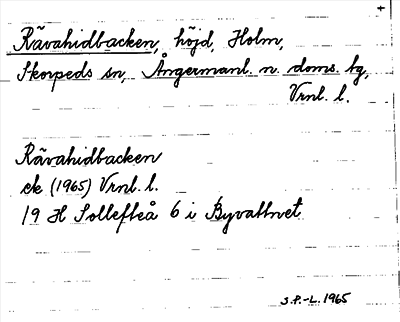 Rävahidbacken, höjd, Holm,
Skorpeds sn, Ångermanl. n. doms. tg,
Vrnl. l.
Rävahidbacken
ek (1965) Vrnl. l.
19 H Sollefteå 6 i Byvattnet
S.P.-L. 1965